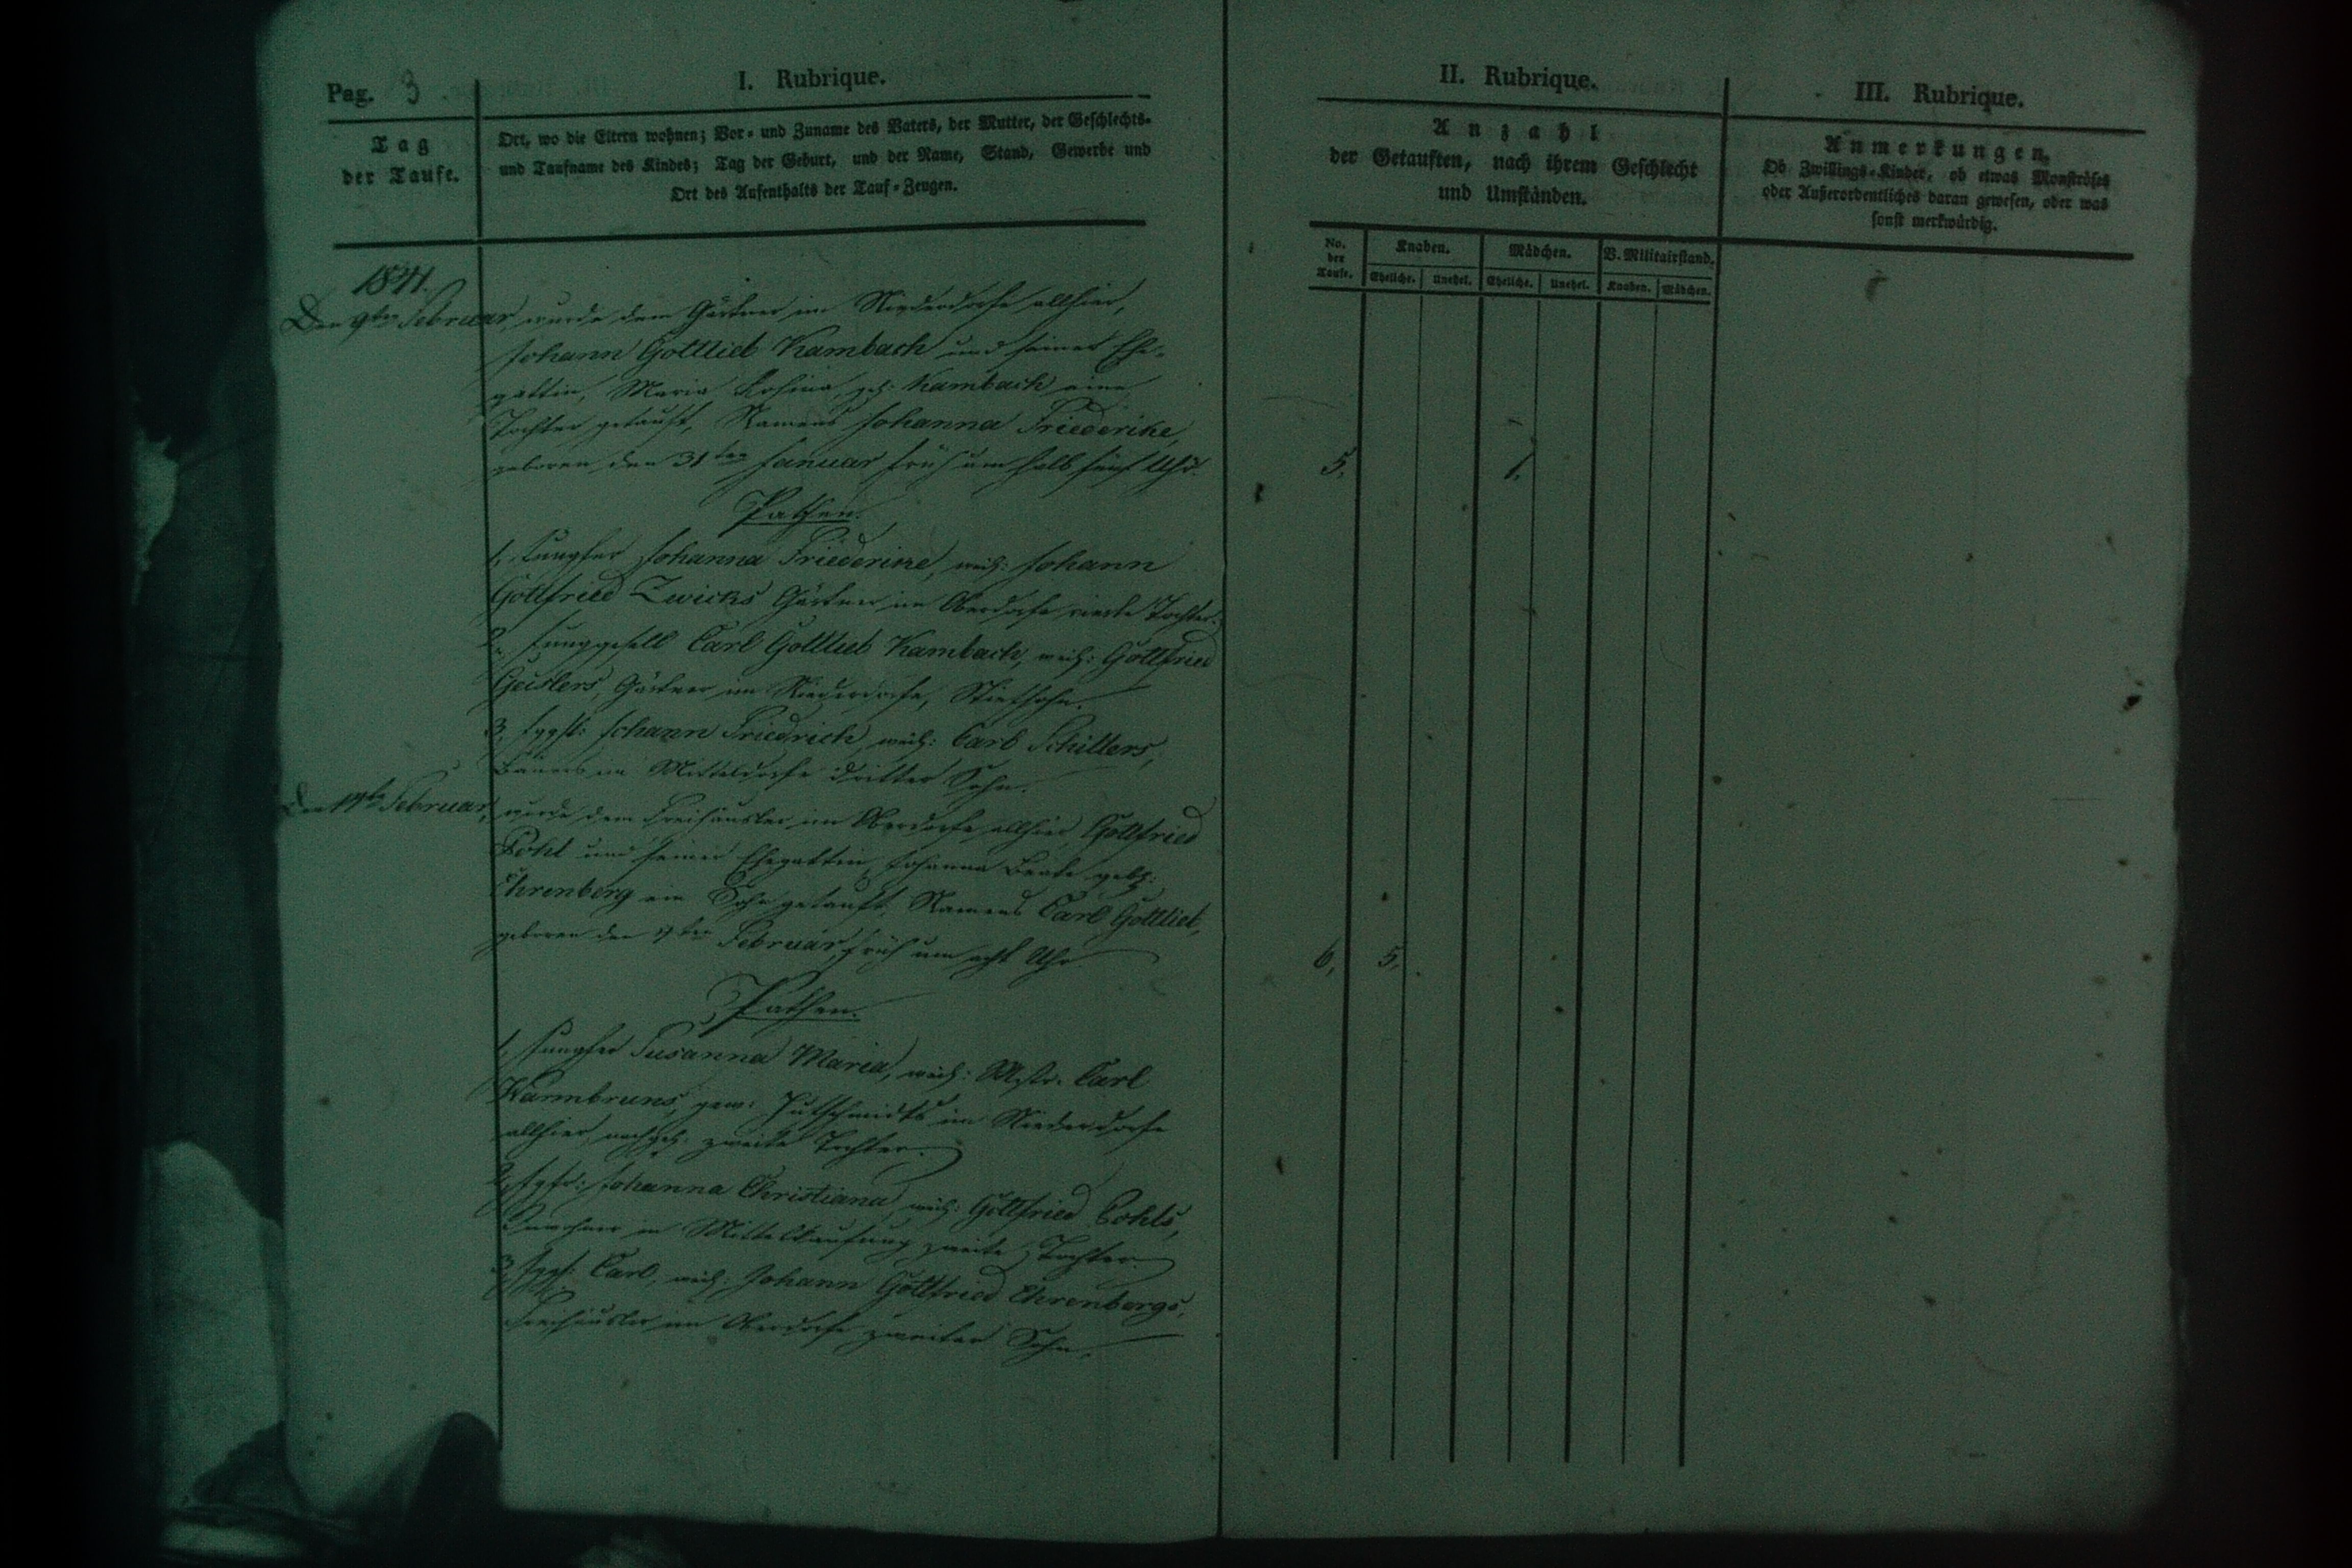 Pag. 3
I. Rubrique.
Tag
der Taufe.
Ort, wo die Eltern wohnen; Vor- und Zuname des Vaters, der Mutter, der Geschlechts-
und Taufname des Kindes; Tag der Geburt, und der Name, Stand, Gewerbe und
Ort des Aufenthalts der Tauf-Zeugen.
1841.
Den 9ten Februar, wurde dem Gärtner im Niederdorfe allhier,
Johann Gottlieb Kambach und seiner Ehe-
gattin, Maria Rosina, geb: Kambach eine
Tochter getauft, Namens Johanna Friederike,
geboren den 31ten Januar früh um halb fünf Uhr.
Pathen.
1, Jungfer Johanna Friederike, Johann
Gottfried Zwicks Gärtner im Oberdorfe Tochter.
2, Junggesell Carl Gottlieb Kambach, Gottfried
Geislers, Gärtner im Niederdorfe, Stiefsohn.
3, Johann Friedrich, Carl Schillers,
Bauers im Mitteldorfe dritter Sohn.
Den 14ten Februar, wurde dem Freihäusler im Oberdorfe allhier, Gottfried
Pohl und seiner Ehegattin, Johanna Beate geb:
Ehrenberg ein Sohn getauft, Namens Carl Gottlieb,
geboren den Februar, früh um acht Uhr
Pathen.
1, Jungfer Susanna Maria, Mstr. Carl
im Niederdorfe
allhier, zweite Tochter.
2, Johanna Christiana, Gottfried Pohls,
in zweite Tochter.
3, Carl, Johann Gottfried Ehrenbergs,
Freihäusler im Oberdorfe zweiter Sohn.
II. Rubrique.
Anzahl
der Getauften, nach ihrem Geschlecht
und Umständen.
No. der Taufe.
Knaben. Mädchen. V. Militairstand.
Eheliche. Unehel. Eheliche. Unehel. Knaben. Mädchen.
5. 1.
6, 5.
III. Rubrique.
Anmerkungen.
Ob Zwillings-Kinder, ob etwas Monströses
oder Außerordentliches daran gewesen, oder was
sonst merkwürdig.